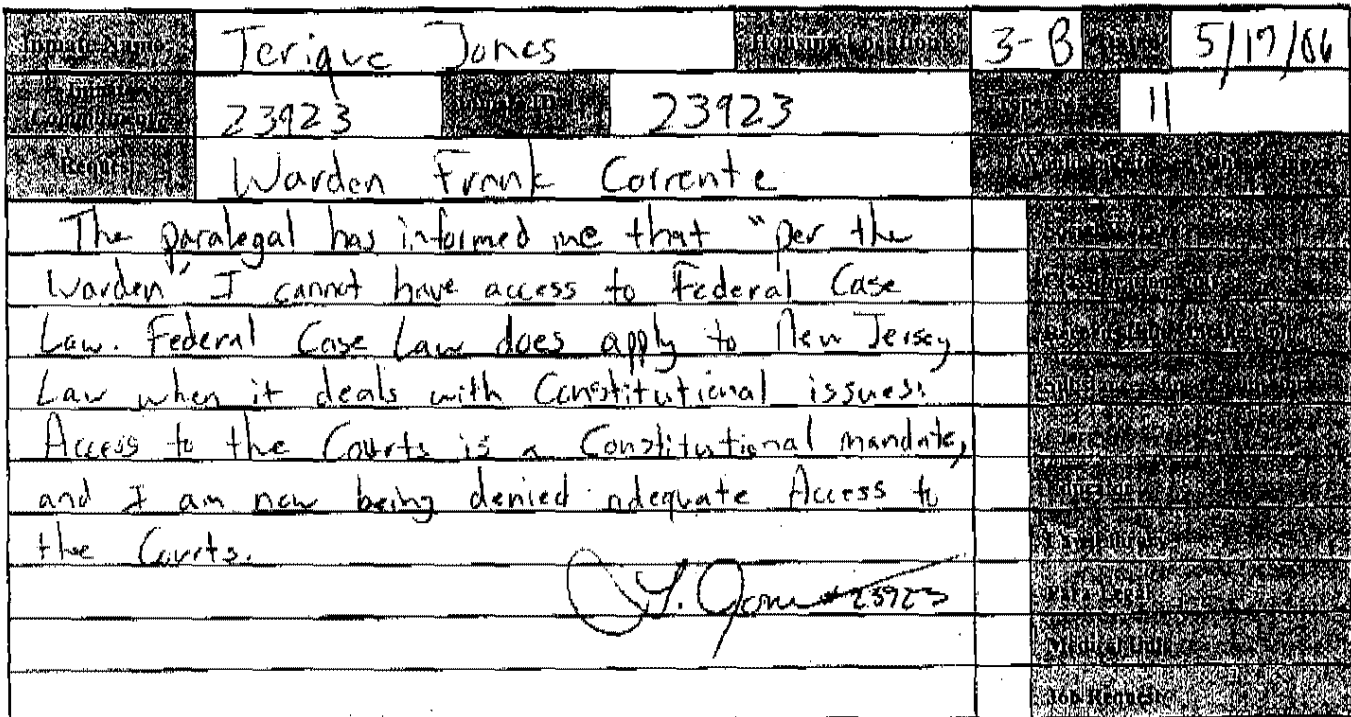 Inmate Name Jerique Jones Housing Location 3-B 5/17/06
Inmate Commitment 23923 23923 11
Request Warden Frank Corrente
The paralegal has informed me that "per the
Warden", I cannot have access to Federal Case
Law. Federal Case Law does apply to New Jersey
Law when it deals with Constitutional issues.
Access to the Courts is a Constitutional mandate,
and I am now being denied adequate Access to
the Courts.
J. Jones #23923
Law Library
Para Legal
Medical Unit
Job Request